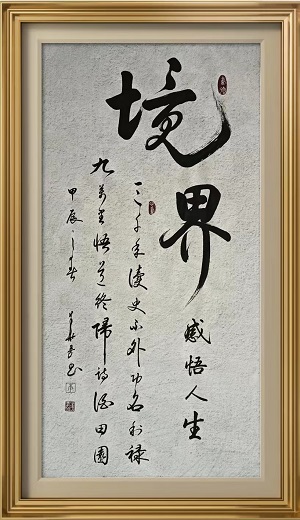 境界
感悟人生
三千年读史不外功名利禄
九万里悟道终归诗酒田园
甲辰之春